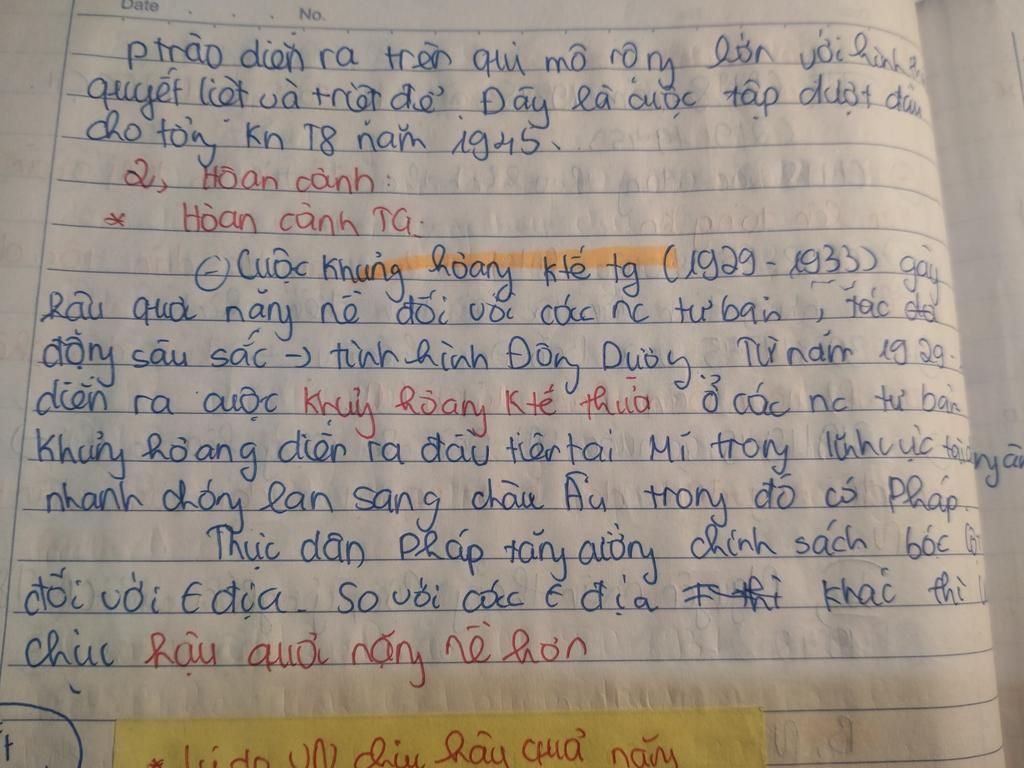 Date No.
ptrào diễn ra trên qui mô rộng lớn với hình
quyết liệt và triệt để. Đây là cuộc tập dượt đầu
cho tổng kn T8 năm 1945.
2, Hoàn cảnh:
* Hoàn cảnh TG.
(-) Cuộc khủng hoảng ktế tg (1929-1933) gây
hậu quả nặng nề đối với các nc tư bản, tác
động sâu sắc → tình hình Đông Dương. Từ năm 1929.
diễn ra cuộc khủng hoảng ktế thừa ở các nc tư bản
khủng hoảng diễn ra đầu tiên tại Mĩ trong lĩnh vực
nhanh chóng lan sang châu Âu trong đó có Pháp.
Thực dân Pháp tăng cường chính sách bóc
đối với t địa. So với các t địa khác thì
chịu hậu quả nặng nề hơn
* Lí do VN chịu hậu quả nặng